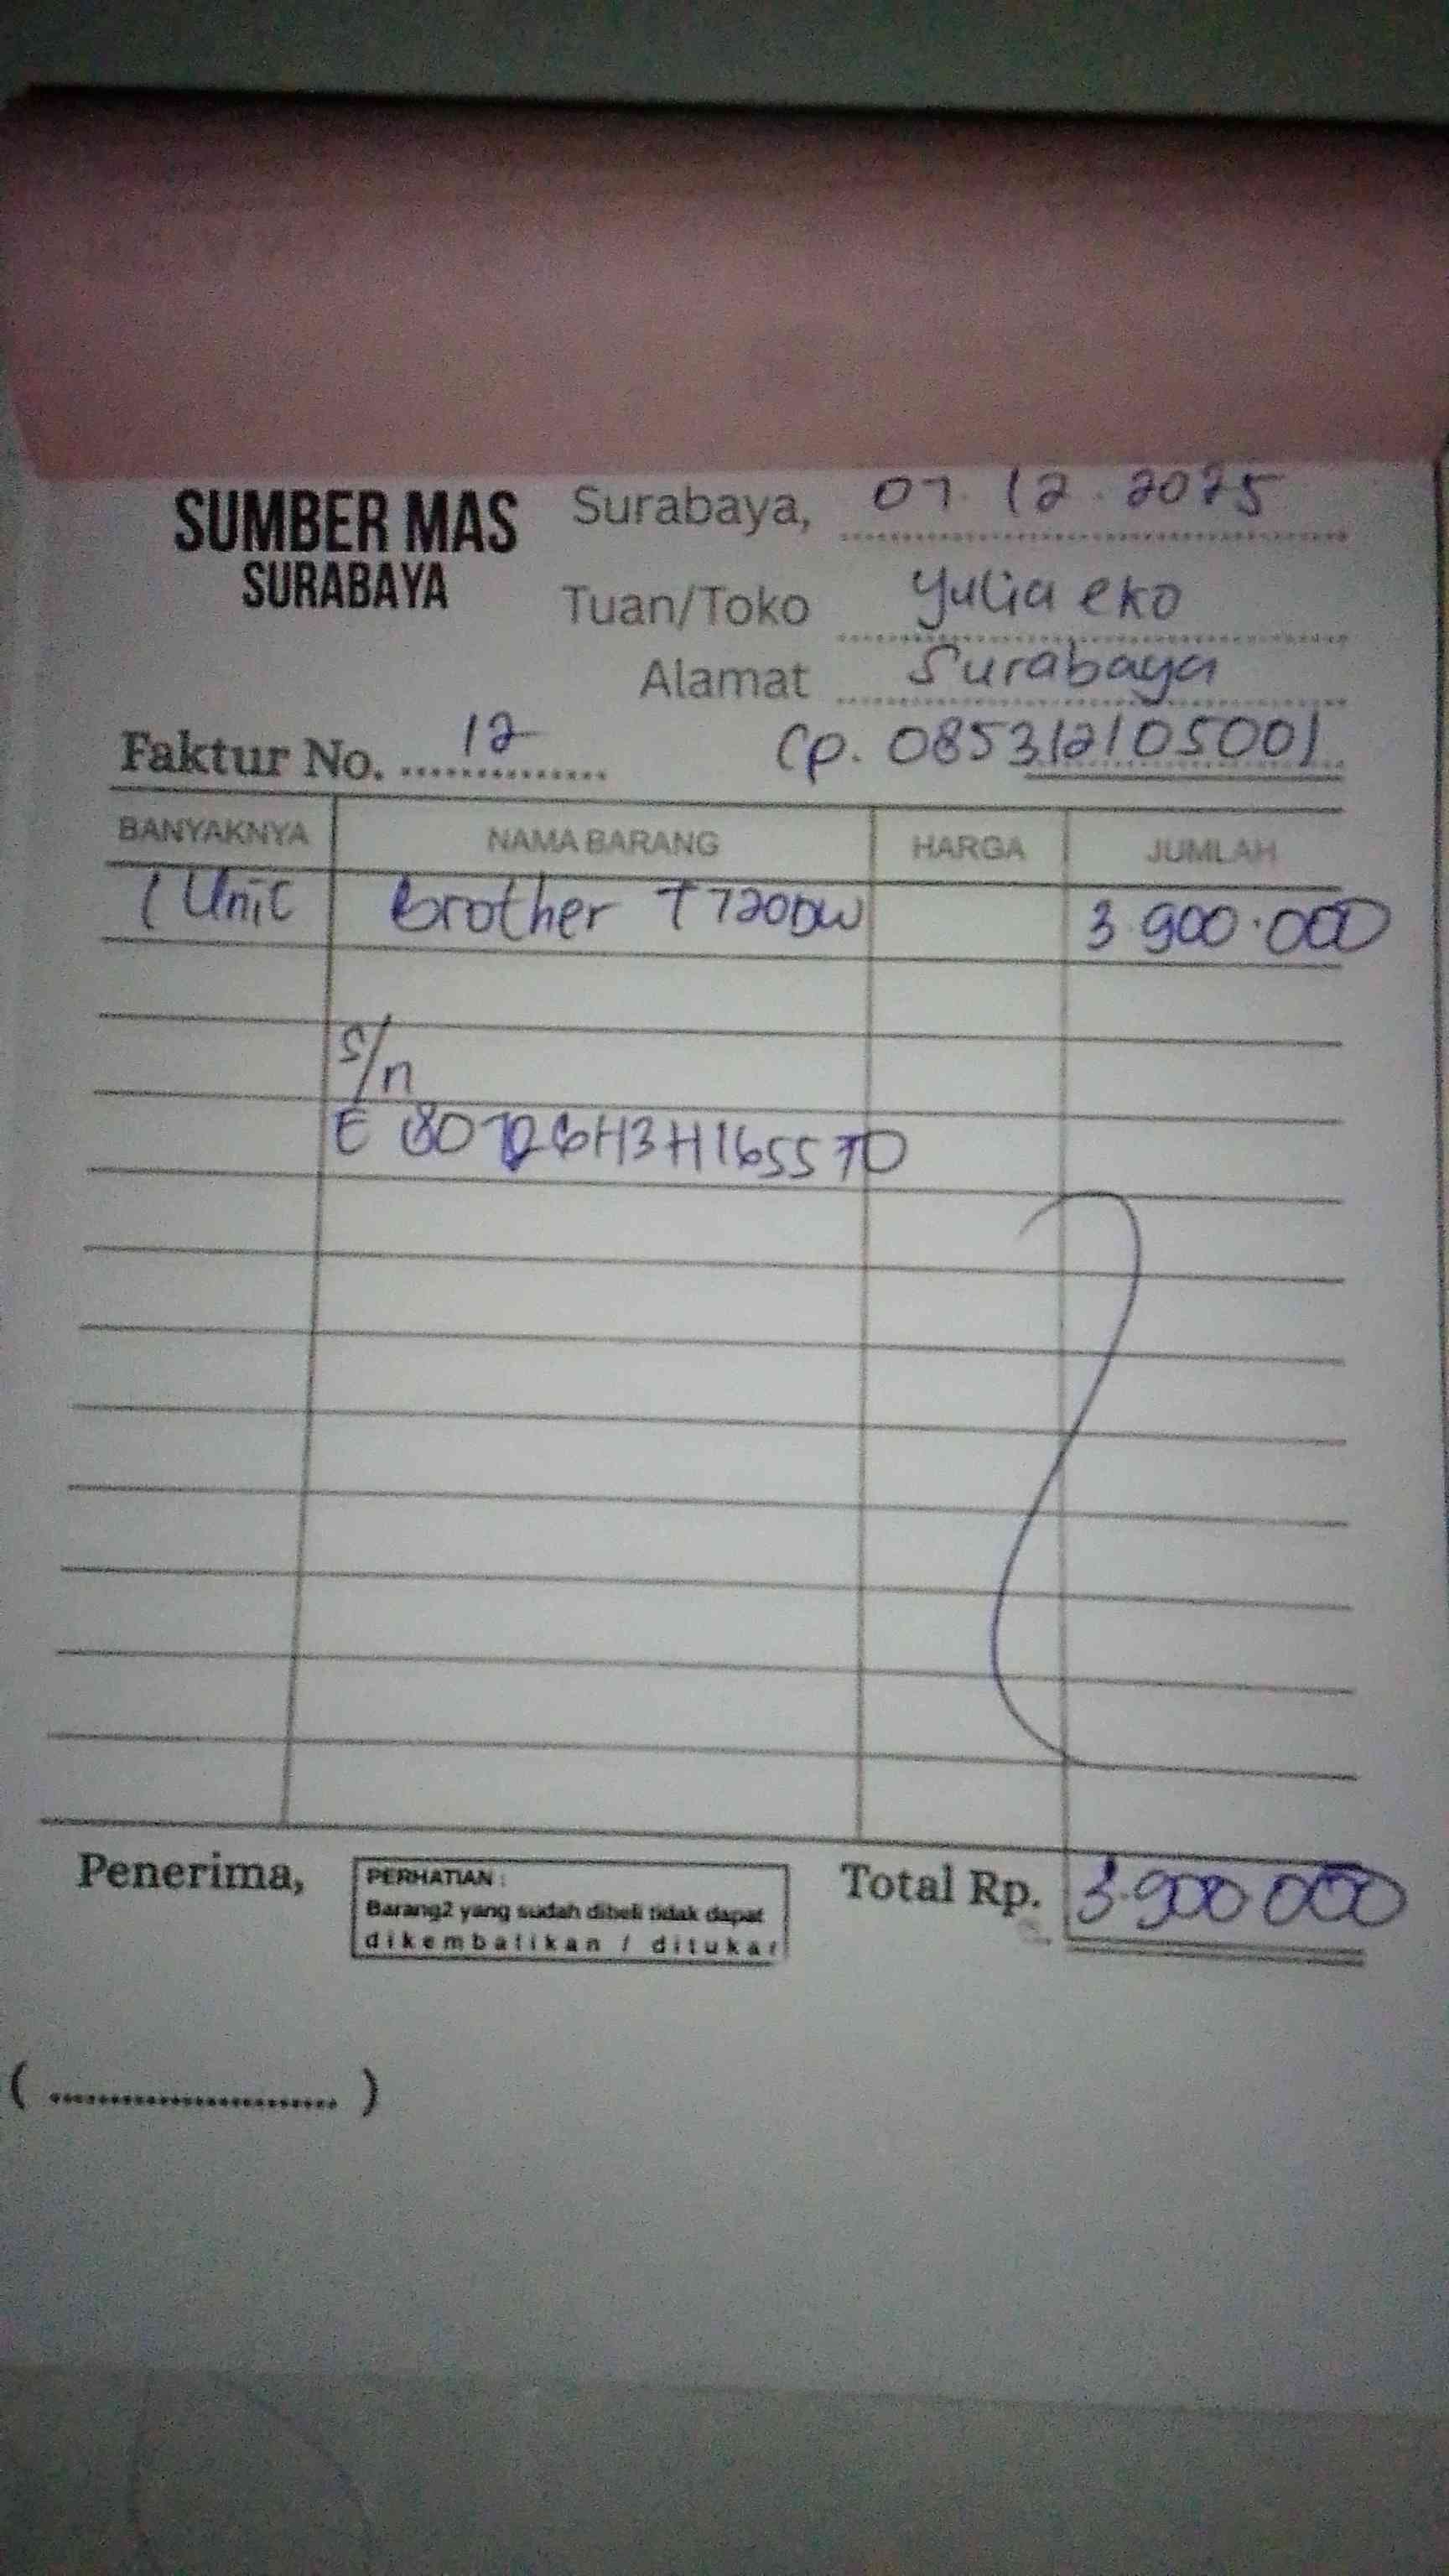 SUMBER MAS
SURABAYA
Surabaya, 07.12.2025
Tuan/Toko Yulia eko
Alamat Surabaya
Faktur No. 12
Cp. 085312105001
BANYAKNYA NAMA BARANG HARGA JUMLAH
1 Unit Brother T720DW 3.900.000
S/n
Penerima,
PERHATIAN :
Barang2 yang sudah dibeli tidak dapat
dikembalikan / ditukar
Total Rp. 3.900.000
(........................)